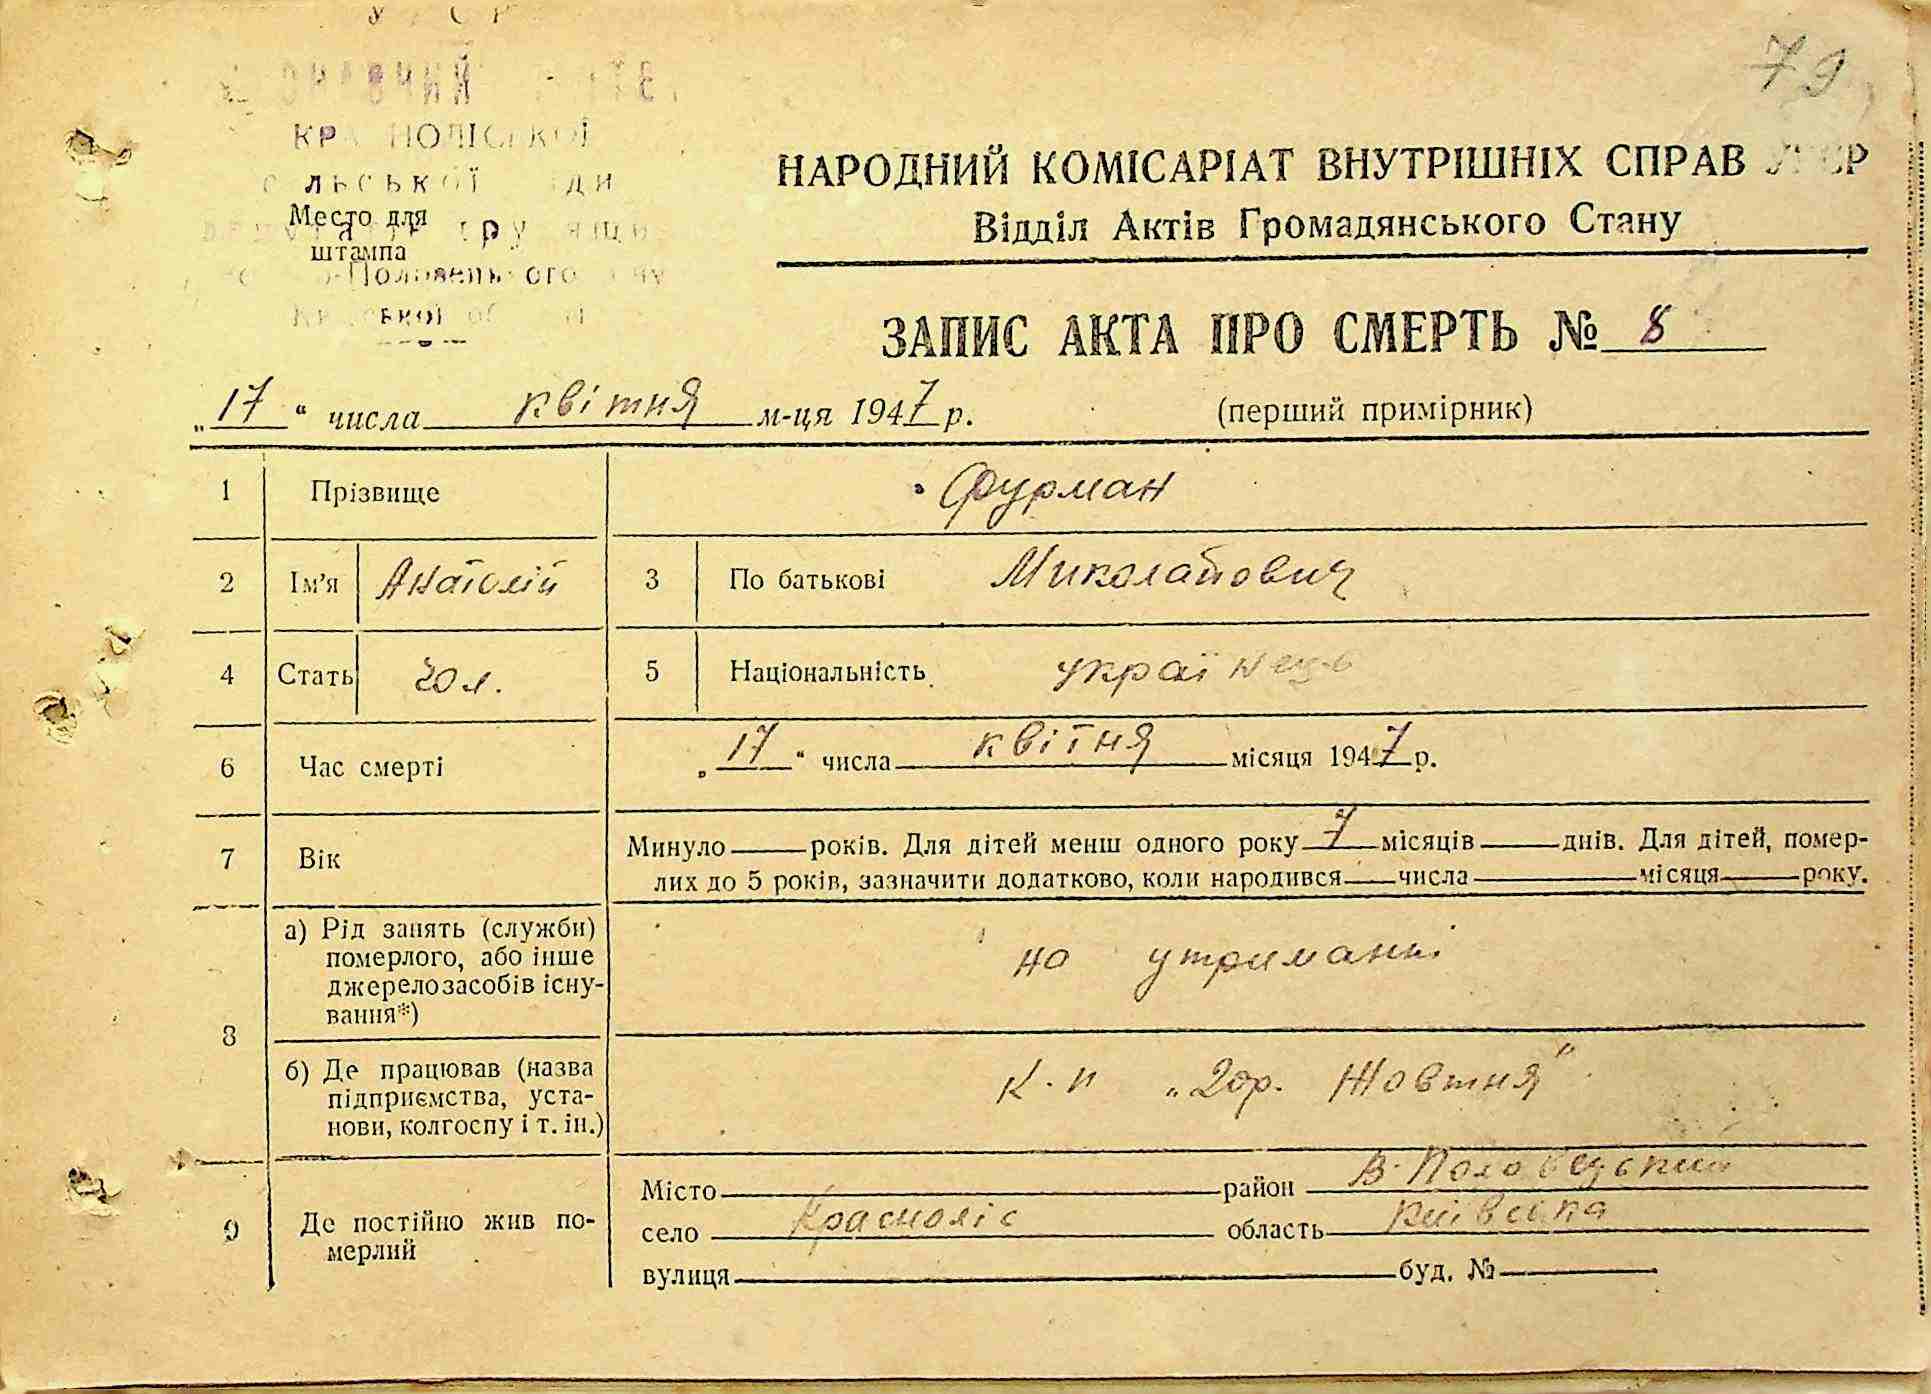 79
КРАСНОЛІСЬКОЇ
Место для
штампа
НАРОДНИЙ КОМІСАРІАТ ВНУТРІШНІХ СПРАВ УРСР
Відділ Актів Громадянського Стану
ЗАПИС АКТА ПРО СМЕРТЬ № 8
„17“ числа квітня м-ця 1947 р. (перший примірник)
1 Прізвище Фурман
2 Ім'я Анатолій 3 По батькові Миколайович
4 Стать чол. 5 Національність українець
6 Час смерті „17“ числа квітня місяця 1947 р.
7 Вік Минуло ___ років. Для дітей менш одного року 7 місяців ___ днів. Для дітей, помер-
лих до 5 років, зазначити додатково, коли народився ___ числа ___ місяця ___ року.
8 а) Рід занять (служби)
померлого, або інше
джерело засобів існу-
вання*)
на утриманні
б) Де працював (назва
підприємства, уста-
нови, колгоспу і т. ін.)
к-п „20р. Жовтня"
9 Де постійно жив по-
мерлий
Місто ___ район В-Половецький
село Красноліс область Київська
вулиця ___ буд. № ___